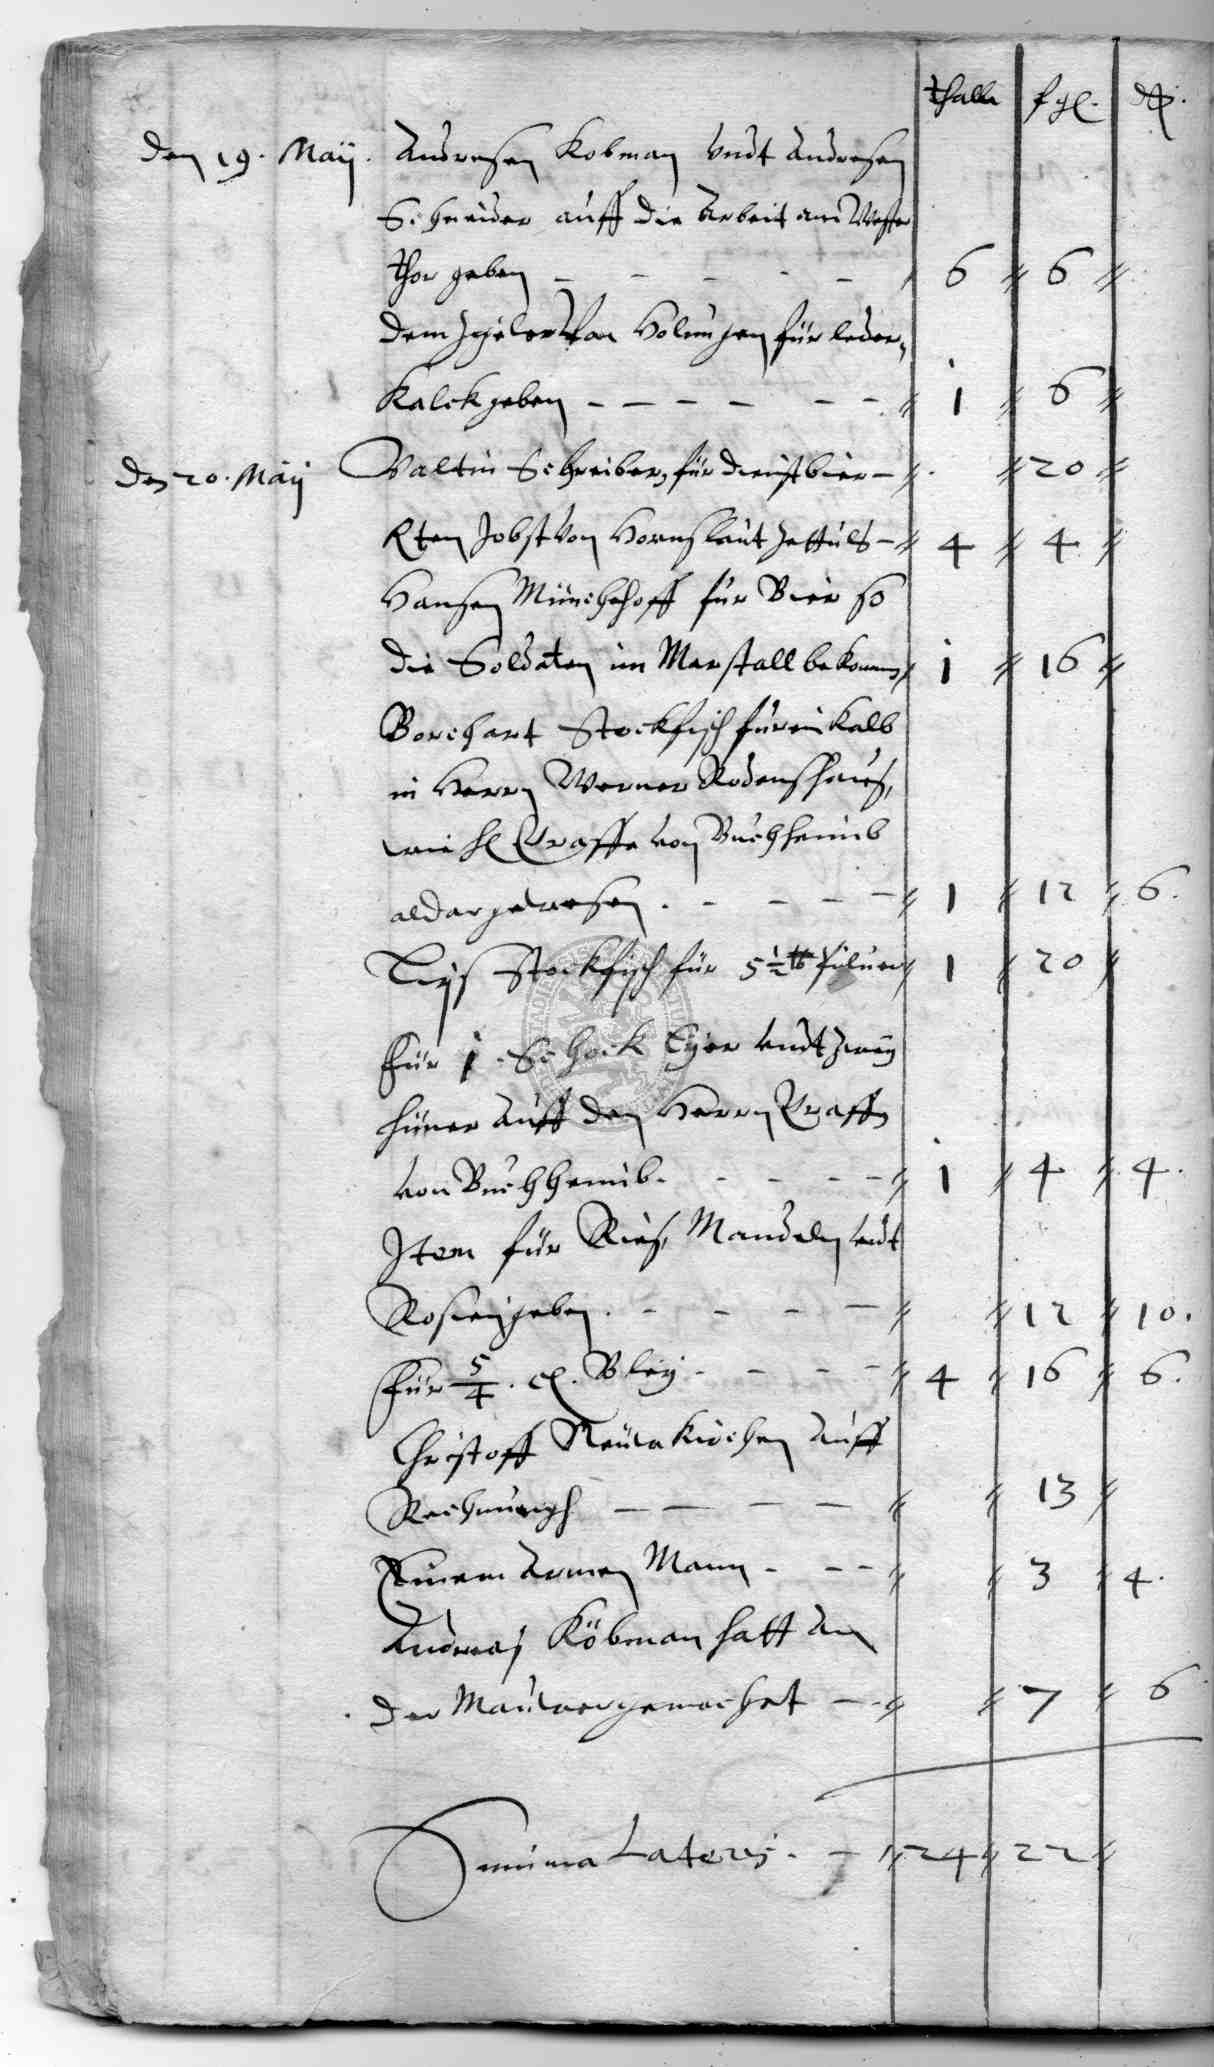 thaller fgl. d.
den 19. Maij. Andresen Kobman vndt Andresen
Schneider auff die Arbeit am Wester
thor geben 6 6
dem von Holungen für leder
Kalck geben 1 6
den 20. Maij Valtin Schreiber für dienstbier 20
Jobst von Hornß laut Zettuls 4 4
Hansen Münchehoff für Bier so
die Soldaten im Marstall bekomen 1 16
Borchart Stockfisch für ein Kalb
in Herrn Werner Rodenß hauß,
wie H Craffe von Buchhenib
aldar gewesen 1 12 6.
Stockfisch für 5 ½ lb 1 20
für 1 Schock Eyer vndt zwey
hüner auff den Herrn Craffn
von Buchhenib. 1 4 4.
Item für Rieß, Mandeln vndt
Rosein geben. 12 10.
für 5/4. Bley 4 16 6.
Christoff Neuenkirchen auff
Rechnungh 13
Einem Armen Mann 3 4.
Andreas Köbman hatt An
der Mauer gemachet 7 6
Summa Lateris. 24 22